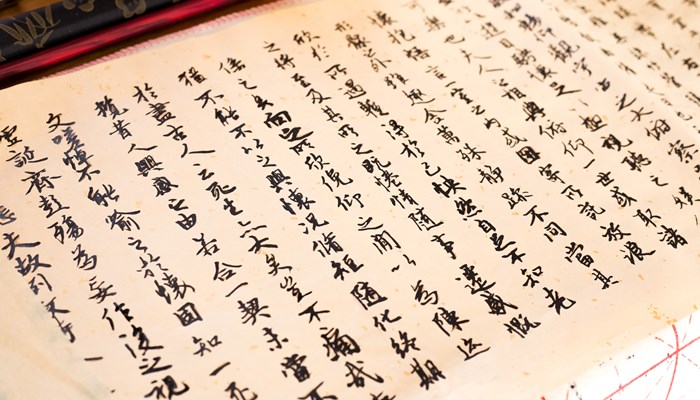 觀宇宙之大俯察
遊目騁懷足以極視聽之
也夫人之相與俯仰一世或取諸
懷抱悟言一室之內或因寄所託放浪
形骸之外雖趣舍萬殊靜躁不同當其
欣於所遇暫得於己快然自足不知老
之將至及其所之既惓情隨事遷感慨
係之矣向之所欣俛仰之間以為陳迹
猶不能不以之興懷況脩短隨化終期
於盡古人云死生亦大矣豈不痛哉
攬昔人興感之由若合一契未嘗不
文嗟悼不能喻之於懷固知一死
虛誕齊彭殤為妄作後之視
悲夫故列敘時人